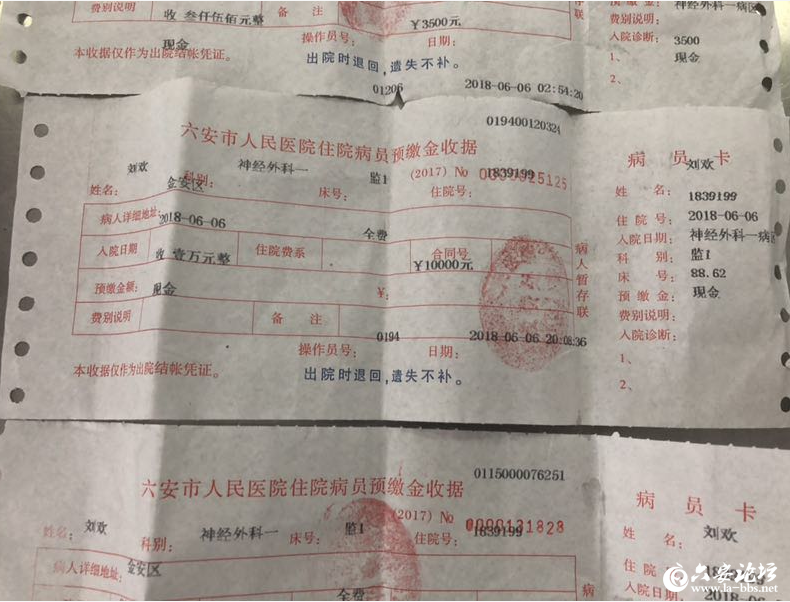 收 叁仟伍佰元整 备 注 ￥3500元
现金 操作员号: 日期:
本收据仅作为出院结帐凭证。 出院时退回,遗失不补。
01206 2018-06-06 02:54:20
存联
预缴金: 神经外科一病区
费别说明:
入院诊断: 3500
1、 现金
2、
019400120324
六安市人民医院住院病员预缴金收据
刘欢 科别: 神经外科一 监1 (2017) No 1839199
姓名: 金安区 床号: 住院号:
病人详细地址: 2018-06-06 全费
入院日期 收 壹万元整 住院费系 合同号 ￥10000元
预缴金额: 现金 ￥:
费别说明 备 注
0194 2018-06-06 20:08:36
操作员号: 日期:
本收据仅作为出院结帐凭证。 出院时退回,遗失不补。
病人暂存联
病 员 卡
刘欢
姓 名: 1839199
住 院 号: 2018-06-06
入院日期: 神经外科一病区
科 别: 监1
床 号: 88.62
预 缴 金: 现金
费别说明:
入院诊断:
1、
2、
0115000076251
六安市人民医院住院病员预缴金收据
(2017) No 0000131828
姓名: 刘欢 科别: 神经外科一 床号: 监1 住院号: 1839199
病人详细地址: 金安区
全费
病
病 员 卡
姓 名: 刘欢
住 院
入院日期 2018-06-06
六安论坛
www.la-bbs.net